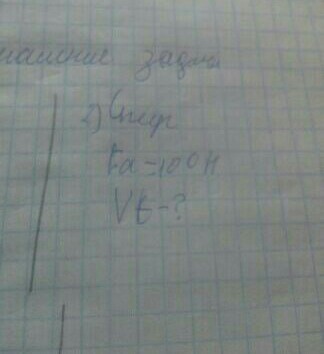 задачи
2) Спирт
Fa-100H
Vt-?